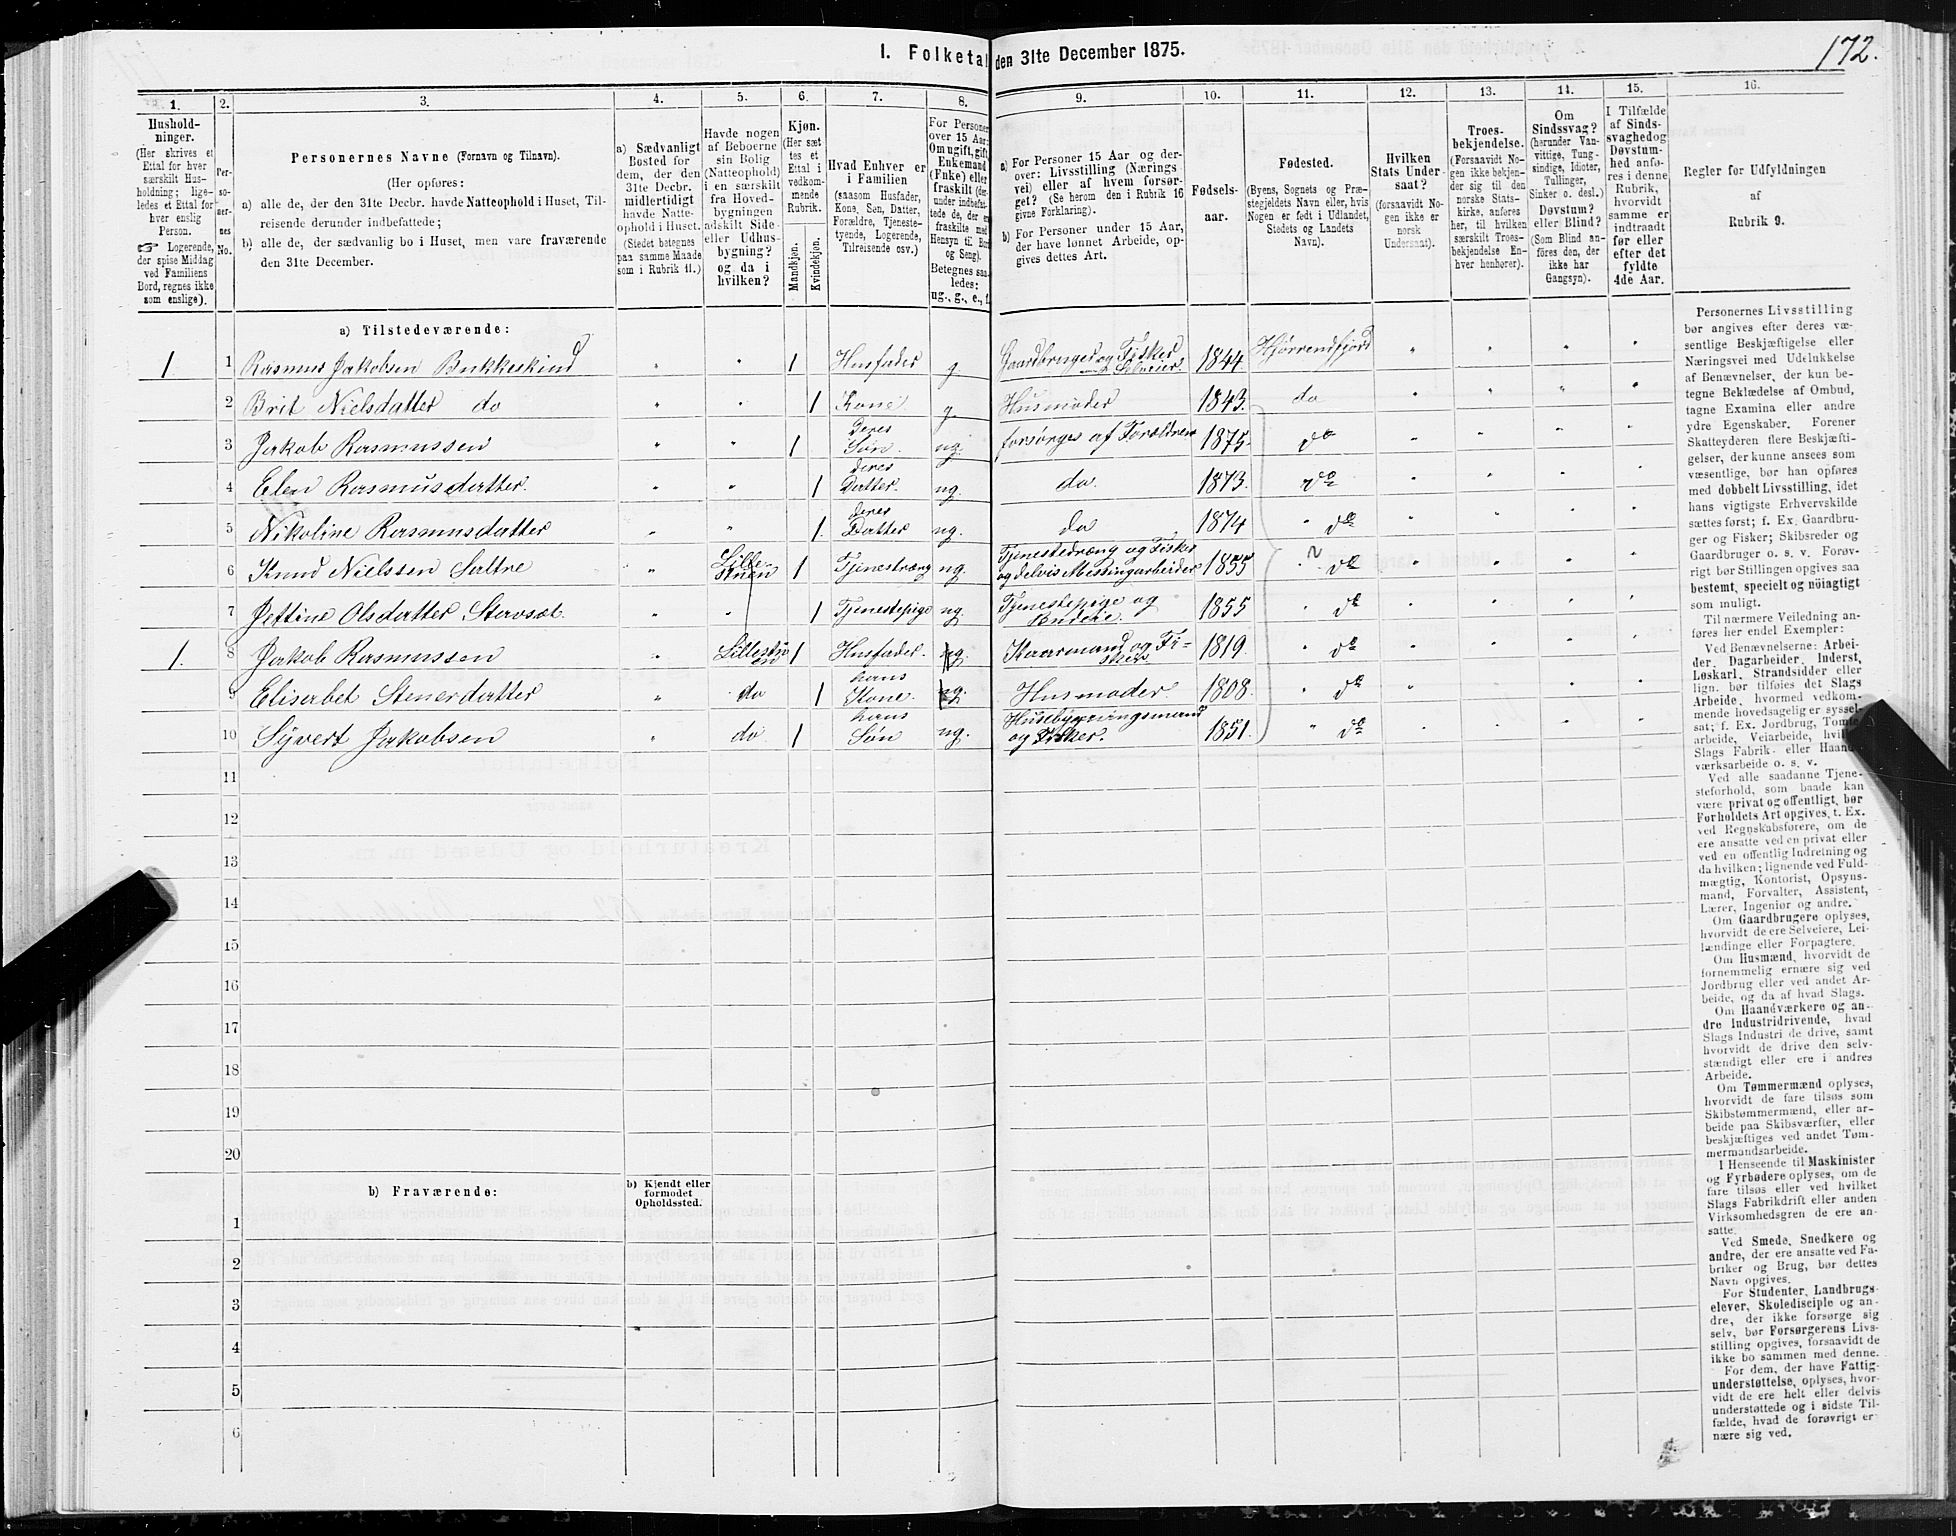 172.
I. Folketal den 31te December 1875.
1. 2. 3. 4. 5. 6. 7. 8. 9. 10. 11. 12. 13. 14. 15. 16.
Hushold-
ninger.
(Her skrives et
Ettal for hver
særskilt Hus-
holdning; lige-
ledes et Ettal for
hver enslig
Person.
☞ Logerende,
der spise Middag
ved Familiens
Bord, regnes ikke
som enslige).
Per-
so-
ner-
nes
No.
Personernes Navne (Fornavn og Tilnavn).
(Her opføres:
a) alle de, der den 31te Decbr. havde Natteophold i Huset, Til-
reisende derunder indbefattede;
b) alle de, der sædvanlig bo i Huset, men vare fraværende
den 31te December.
a) Sædvanligt
Bosted for
dem, der den
31te Decbr.
midlertidigt
havde Natte-
ophold i Huset.
(Stedet betegnes
paa samme Maade
som i Rubrik 11.)
Havde nogen
af Beboerne
sin Bolig
(Natteophold)
i en særskilt
fra Hoved-
bygningen
adskilt Side-
eller Udhus-
bygning?
og da i
hvilken?
Kjøn.
(Her sæt
tes et
Ettal i
vedkom-
mende
Rubrik.
Mandkjøn.
Kvindekjøn.
Hvad Enhver er
i Familien
(saasom Husfader,
Kone, Søn, Datter,
Forældre, Tjeneste-
tyende, Logerende,
Tilreisende osv.)
For Personer
over 15 Aar:
Om ugift, gift,
Enkemand
(Enke) eller
fraskilt (der-
under indbefat-
tede de, der ere
fraskilte med
Hensyn til Bord
og Seng).
Betegnes saa-
ledes:
ug., g., e., f.
a) For Personer 15 Aar og der-
over: Livsstilling (Nærings-
vei) eller af hvem forsør-
get? (Se herom den i Rubrik 16
givne Forklaring).
b) For Personer under 15 Aar,
der have lønnet Arbeide, op-
gives dettes Art.
Fødsels-
aar.
Fødested.
(Byens, Sognets og Præ-
stegjeldets Navn eller, hvis
Nogen er født i Udlandet,
Stedets og Landets
Navn).
Hvilken
Stats Under-
saat?
(forsaavidt No-
gen ikke er
norsk
Undersaat).
Troes-
bekjendelse.
(Forsaavidt No-
gen ikke bekjen-
der sig til den
norske Stats-
kirke, anføres
her, til hvilken
særskilt Troes-
bekjendelse En-
hver henhører).
Om
Sindssvag?
(herunder Van-
vittige, Tung-
sindige, Idioter,
Tullinger,
Sinker o. desl.)
Døvstum?
eller Blind?
(Som Blind an-
føres den, der
ikke har
Gangsyn).
I Tilfælde
af Sinds-
svaghed og
Døvstum-
hed anfø-
res i denne
Rubrik,
hvorvidt
samme er
indtraadt
før eller
efter det
fyldte
4de Aar.
Regler for Udfyldningen
af
Rubrik 9.
a) Tilstedeværende:
1 1 Rasmus Jakobsen Bukkeskind " " 1 Husfader g. Gaardbruger og Fisker 1844 Hjørrendfjord " " " "
Selveier
2 Brit Nielsdatter do " " 1 Kone g. Husmoder 1843. do " " " "
3 Jakob Rasmussen " " 1 deres Søn. ug. forsørges af Forældren 1875. do " " " "
4 Elen Rasmusdatter. " " 1 deres Datter. ug. do. 1873. do " " " "
5 Nikoline Rasmusdatter " " 1. deres Datter ug. do 1874 " do " " " "
6 Knud Nielssen Sætre " Lille-stuen 1 Tjenestræng ug. Tjenestedræng og Fisker 1855 " do " " " "
og delvis Messingarbeider
7 Jettine Olsdatter Stavsæt. " " 1 Tjenestepige ug. Tjenestepige og 1855 " do " " " "
Budeie.
1. 8 Jakob Rasmussen " Lillestuen 1 Husfader. g. Kaarmand og Fi- 1819. " do " " " "
sker
9 Elisabet Stenersdatter " do 1 hans Kone. g. Husmoder. 1808. " do " " " "
10 Syvert Jakobsen " do 1 hans Søn ug. Husebygningsmand 1851. " do " " " "
og Fisker.
11
12
13
14
15
16
17
18
19
20
b) Fraværende:
b) Kjendt eller
formodet
Opholdssted.
1
2
3
4
5
6
Personernes Livsstilling
bør angives efter deres væ-
sentlige Beskjæftigelse eller
Næringsvei med Udelukkelse
af Benævnelser, der kun be-
tegne Beklædelse af Ombud,
tagne Examina eller andre
ydre Egenskaber. Forener
Skatteyderen flere Beskjæfti-
gelser, der kunne ansees som
væsentlige, bør han opføres
med dobbelt Livsstilling, idet
hans vigtigste Erhvervskilde
sættes først; f. Ex. Gaardbru-
ger og Fisker; Skibsreder og
Gaardbruger o. s. v. Forøv-
rigt bør Stillingen opgives saa
bestemt, specielt og nöiagtigt
som muligt.
Til nærmere Veiledning an-
føres her endel Exempler:
Ved Benævnelserne: Arbei-
der, Dagarbeider, Inderst,
Løskarl, Strandsidder eller
lign. bør tilføies det Slags
Arbeide, hvormed vedkom-
mende hovedsagelig er syssel-
sat; f. Ex. Jordbrug, Tomte-
arbeide, Veiarbeide, hvilket
Slags Fabrik- eller Haand-
værksarbeide o. s. v.
Ved alle saadanne Tjene-
steforhold, som baade kan
være privat og offentligt, bør
Forholdets Art opgives, t. Ex.
ved Regnskabsførere, om de
ere ansatte ved en privat eller
ved en offentlig Indretning og
da hvilken; lignende ved Fuld-
mægtig, Kontorist, Opsyns-
mand, Forvalter, Assistent,
Lærer, Ingeniør og andre.
Om Gaardbrugere oplyses,
hvorvidt de ere Selveiere, Lei-
lændinge eller Forpagtere.
Om Husmænd, hvorvidt de
fornemmelig ernære sig ved
Jordbrug eller ved andet Ar-
beide, og da af hvad Slags.
Om Haandværkere og an-
dre Industridrivende, hvad
Slags Industri de drive, samt
hvorvidt de drive den selv-
stændigt eller ere i andres
Arbeide.
Om Tømmermænd oplyses,
hvorvidt de fare tilsøs som
Skibstømmermænd, eller ar-
beide paa Skibsværfter, eller
beskjæftiges ved andet Tøm-
mermandsarbeide.
I Henseende til Maskinister
og Fyrbødere oplyses, om de
fare tilsøs eller ved hvilket
Slags Fabrikdrift eller anden
Virksomhedsgren de ere an-
satte.
Ved Smede, Snedkere og
andre, der ere ansatte ved Fa-
briker og Brug, bør dettes
Navn opgives.
For Studenter, Landbrugs-
elever, Skoledisciple og an-
dre, der ikke forsørge sig
selv, bør Forsørgerens Livs-
stilling opgives, forsaavidt de
ikke bo sammen med denne.
For dem, der have Fattig-
understøttelse, oplyses, hvor-
vidt de ere helt eller delvis
understøttede og i sidste Til-
fælde, hvad de forøvrigt er-
nære sig ved.